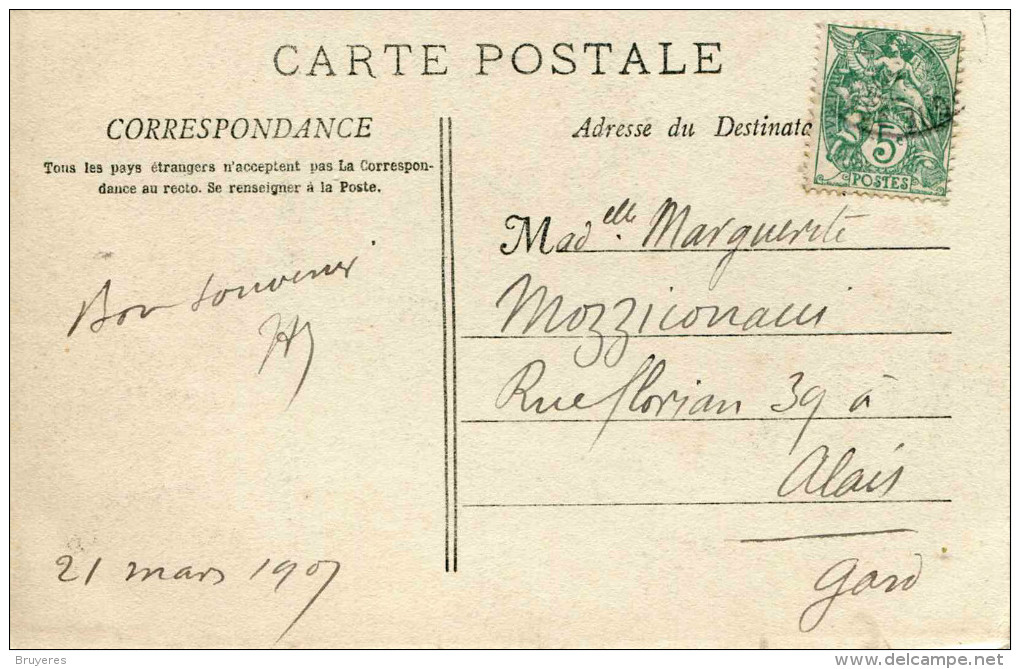 CARTE POSTALE
CORRESPONDANCE
Tous les pays étrangers n'acceptent pas La Correspon-
dance au recto. Se renseigner à la Poste.
Bon souvenir
21 mars 1907
Adresse du Destinata
5
POSTES
Madelle. Marguerite
Mozziconacci
Rue florian 39 à
Alais
Gard
Bruyeres
delcampe.net